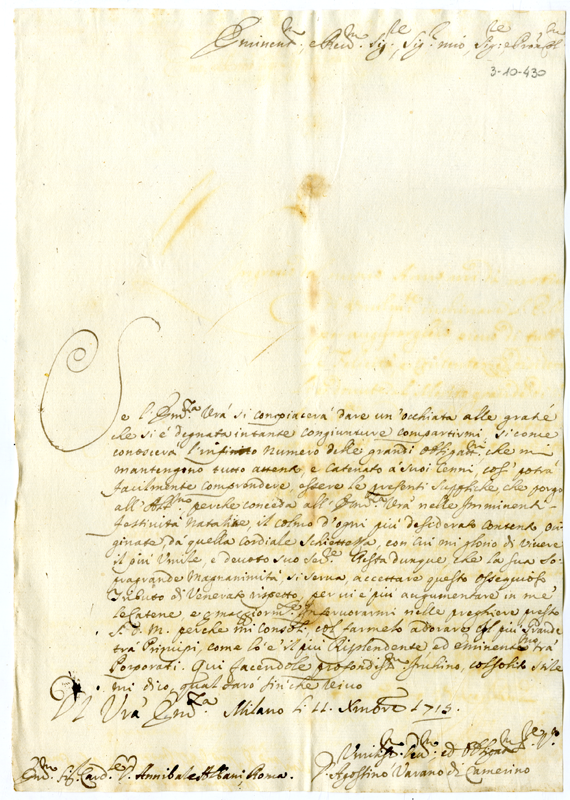 Eminent.mo e Rev.mo Sig.re, Sig.r mio, Sig.re e Prõn
3-10-430
Se l'Em.za Vrã si compiacerà dare un'occhiata alle gratie
che si è degnata in tante congiunture compartirmi, si come
conoscerà l'infinito numero delle grandi obligat.ni che mi
mantengono tutto e catenato à Suoi Cenni, così potrà
facilmente comprendere essere le presenti Suppliche che porgo
all'Alt.mo perche conceda all'Em.za Vrã nelle imminenti
festività Natalitie, il colmo d'ogni più desiderato contento ori
ginate da quella cordiale Schiettezza, con cui mi glorio di vivere
il più Umile, e devoto suo Ser.re Resta dunque, che la sua So
pragrande Magnanimità, si serva, accettare questo ossequioso
Tributo di Venerato rispetto, per vie più augumentare in me
le Catene, e magiorm.te infervorarmi nelle preghiere presso
S. D. M. perche mi consoli, col farmelo adorare il più Grande
trà Principi, come lo è il più Risplendente ed eminente trà
Porporati. Qui facendole profondiss.mo inchino, col solito stile
mi dico, qual sarò fin che vivo
Di Vrã Em.za Milano li 11 Xmbre 1715.
Em.mo Sig.r Card.le D. Annibale Albani Roma.
D. Agostino Varano di Camerino